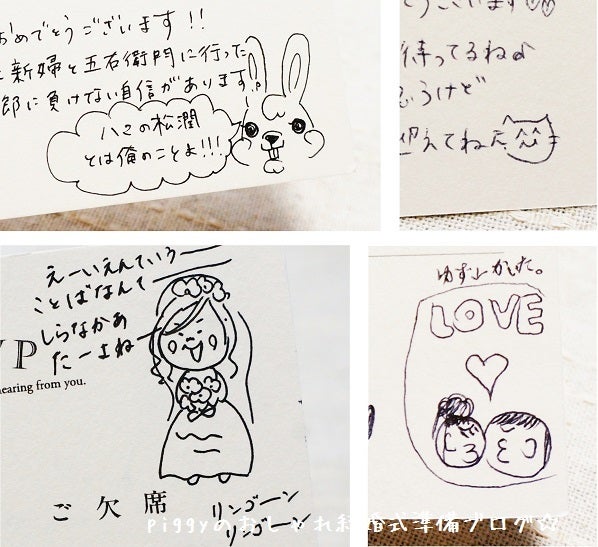 おめでとうございます!!
と新婦と五右衛門に行った
郎に負けない自信があります。
ハマの松潤
とは俺のことよ!!!
うございます♡♡
待ってるね♪
思うけど
迎えてねた
えーいえんていう
ことばなんて
しらなかあ
たーよねー
YP
hearing from you.
ご欠席
リンゴーン
リンゴーン
ゆずしかした。
LOVE
piggyのおしゃれ結婚式準備ブログ